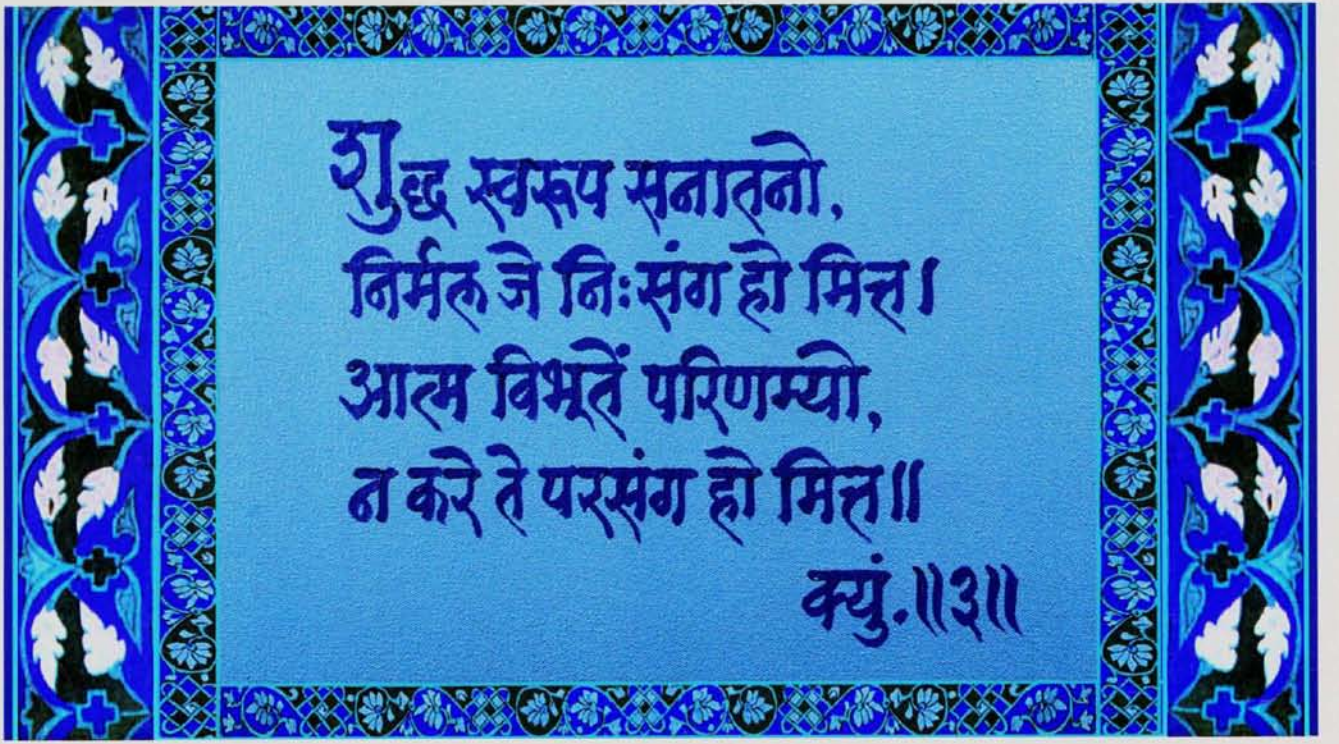 शुद्ध स्वरूप सनातनो,
निर्मल जे निःसंग हो मित्त।
आत्म विभूतें परिणम्यो,
न करे ते परसंग हो मित्त॥
क्युं.॥३॥